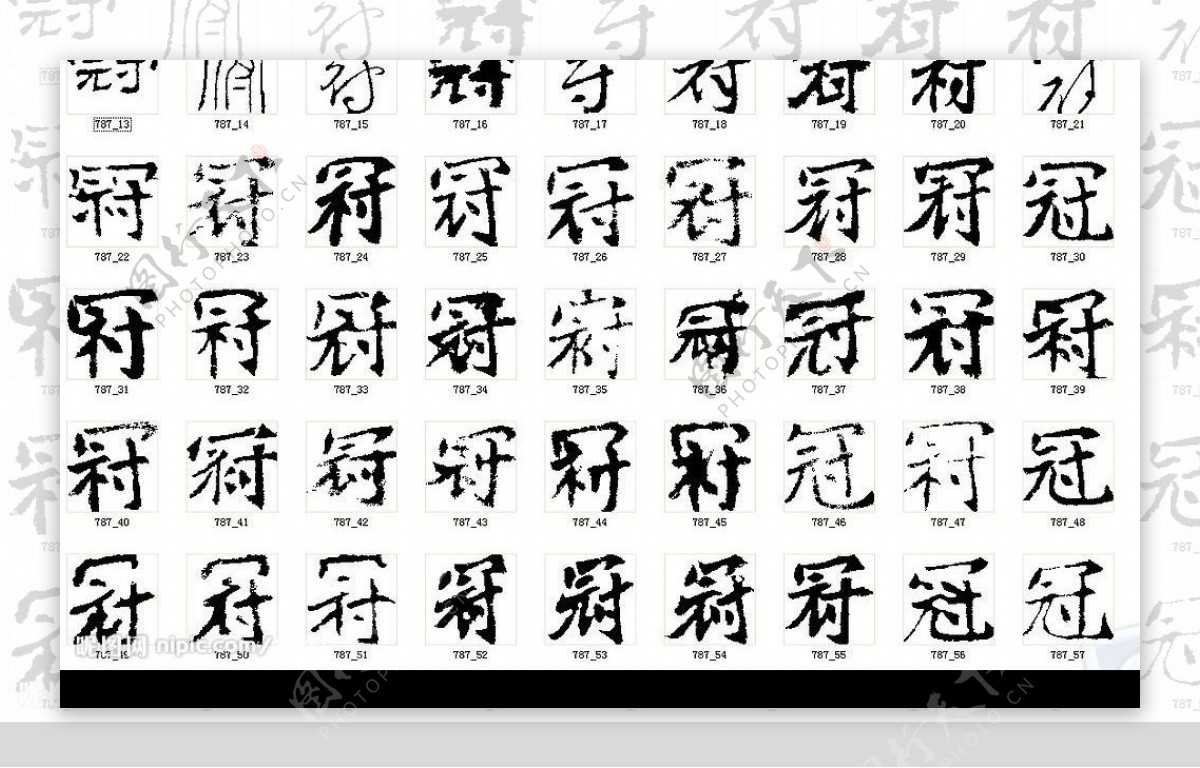 冠 冠 冠 冠 冠 冠 冠 冠 冠
787_13 787_14 787_15 787_16 787_17 787_18 787_19 787_20 787_21
冠 冠 冠 冠 冠 冠 冠 冠 冠
787_22 787_23 787_24 787_25 787_26 787_27 787_28 787_29 787_30
冠 冠 冠 冠 冠 冠 冠 冠 冠
787_31 787_32 787_33 787_34 787_35 787_36 787_37 787_38 787_39
冠 冠 冠 冠 冠 冠 冠 冠 冠
787_40 787_41 787_42 787_43 787_44 787_45 787_46 787_47 787_48
冠 冠 冠 冠 冠 冠 冠 冠 冠
787_49 787_50 787_51 787_52 787_53 787_54 787_55 787_56 787_57
昵图网 nipic.com/
图行天下 PHOTOPHOTO.CN